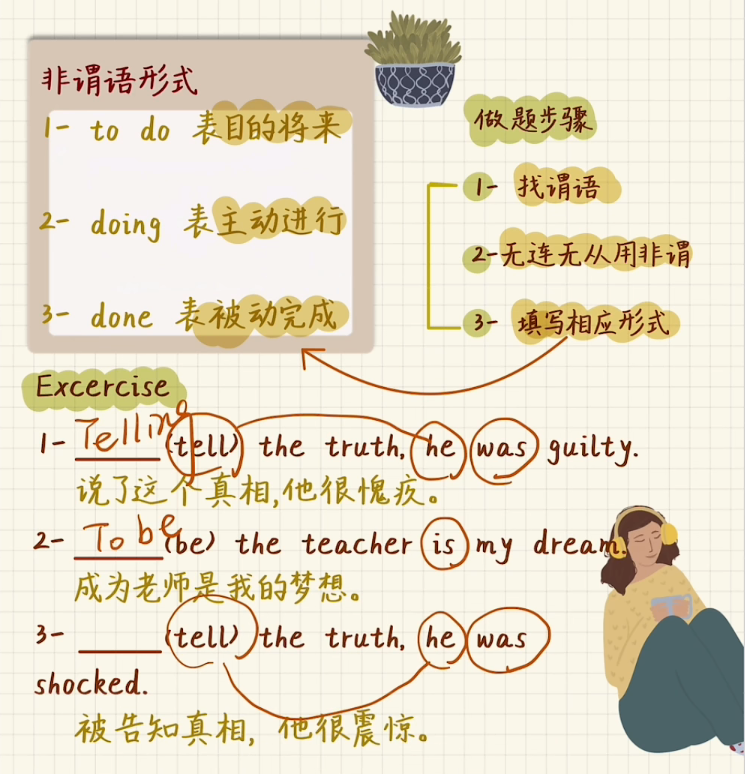 非谓语形式
1- to do 表目的将来
2- doing 表主动进行
3- done 表被动完成
做题步骤
1- 找谓语
2-无连无从用非谓
3- 填写相应形式
Excercise
1- Telling (tell) the truth, he was guilty.
说了这个真相,他很愧疚。
2- To be (be) the teacher is my dream.
成为老师是我的梦想。
3- ______ (tell) the truth, he was
shocked.
被告知真相, 他很震惊。